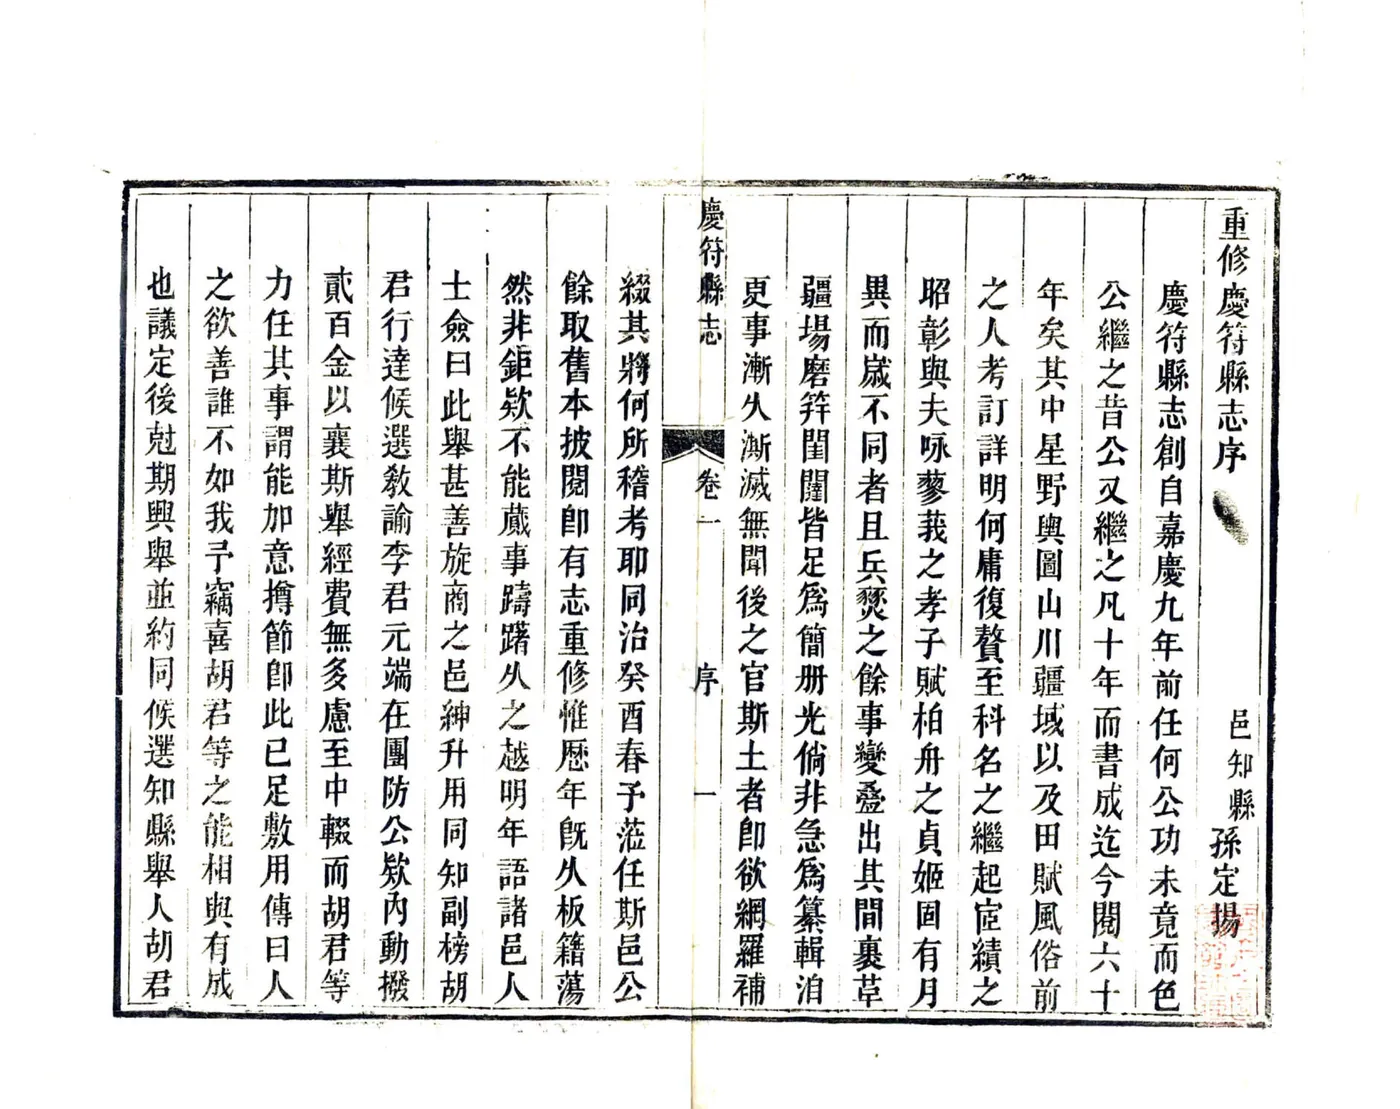 重修慶符縣志序
邑知縣孫定揚
慶符縣志創自嘉慶九年前任何公功未竟而色
公繼之昔公又繼之凡十年而書成迄今閱六十
年矣其中星野輿圖山川疆域以及田賦風俗前
之人考訂詳明何庸復贅至科名之繼起宦績之
昭彰與夫咏蓼莪之孝子賦柏舟之貞姬固有月
異而歲不同者且兵燹之餘事變疊出其間裹革
疆場磨笄閨闥皆足為簡册光倘非急為纂輯洎
更事漸乆漸滅無聞後之官斯土者卽欲網羅補
慶符縣志
卷一
序
一
綴其將何所稽考耶同治癸酉春予蒞任斯邑公
餘取舊本披閱卽有志重修惟歷年旣乆板籍蕩
然非鉅欵不能蕆事躊躇乆之越明年語諸邑人
士僉曰此舉甚善旋商之邑紳升用同知副榜胡
君行達候選敎諭李君元端在團防公欵內動撥
貳百金以襄斯舉經費無多慮至中輟而胡君等
力任其事謂能加意撙節卽此已足敷用傳曰人
之欲善誰不如我予竊喜胡君等之能相與有成
也議定後尅期興舉並約同候選知縣舉人胡君